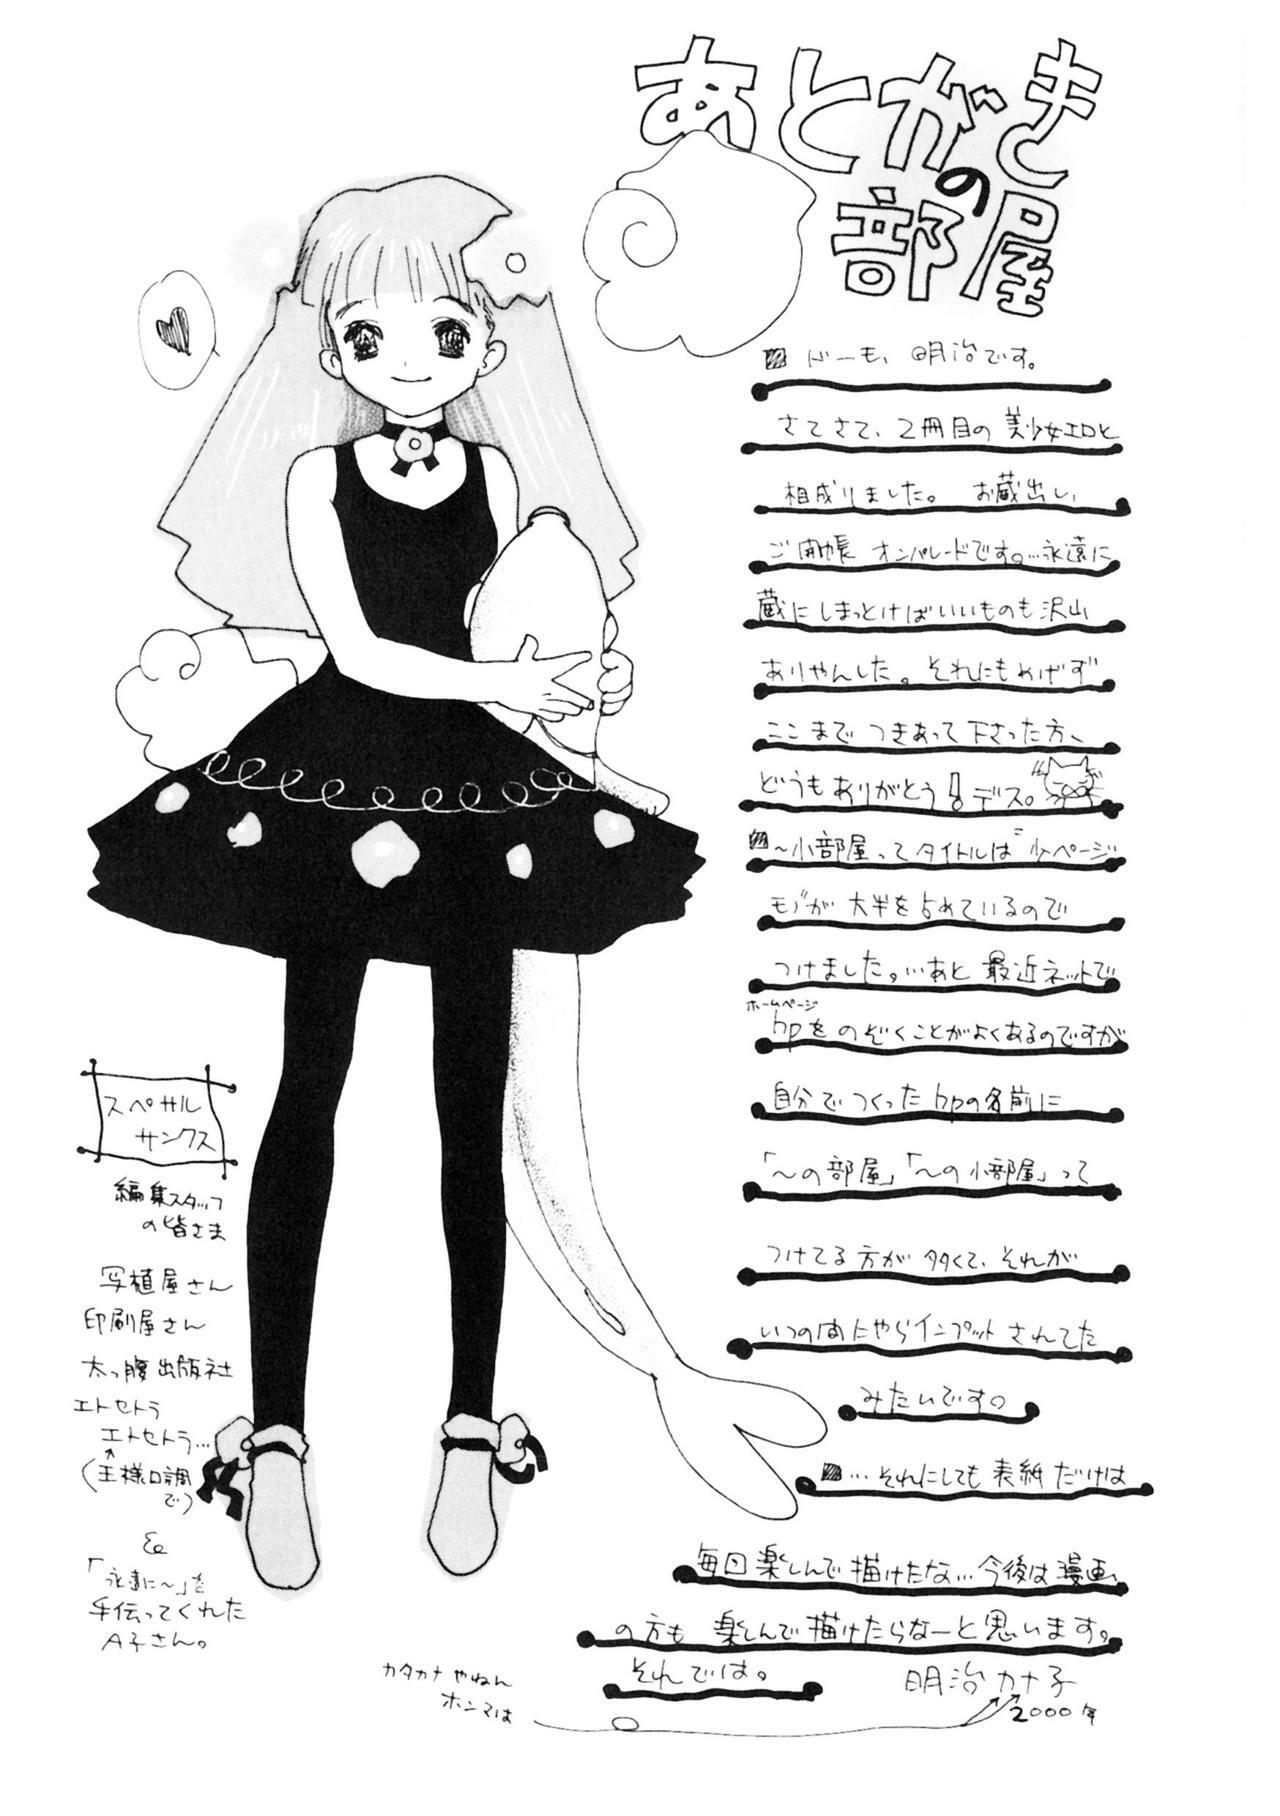 あとがき
の
部屋
ドーも、明治です。
さてさて、2冊目の美少女エロと
相成りました。 お蔵出し、
ご開帳 オンパレードです。…永遠に
蔵にしまっとけばいいものも沢山
ありやんした。それにもめげず
ここまで つきあって下さった方、
どうもありがとう!デス。
～小部屋ってタイトルは 少ページ
モノが 大半を占めているので
つけました。…あと 最近ネットで
ホームページ
hpをのぞくことがよくあるのですが
自分でつくったhpの名前に
「～の部屋」「～の小部屋」って
つけてる方が多くて、それが
いつの間にやらインプットされてた
みたいです。
…それにしても表紙だけは
毎回楽しんで描けたな…今後は漫画
の方も 楽しんで描けたらなーと思います。
それでは。 明治カナ子
2000年
カタカナやねん
ホンマは
スペサル
サンクス
編集スタッフ
の皆さま
写植屋さん
印刷屋さん
太っ腹出版社
エトセトラ
エトセトラ…
(王様口調
で)
&
「永遠に～」を
手伝ってくれた
A子さん。